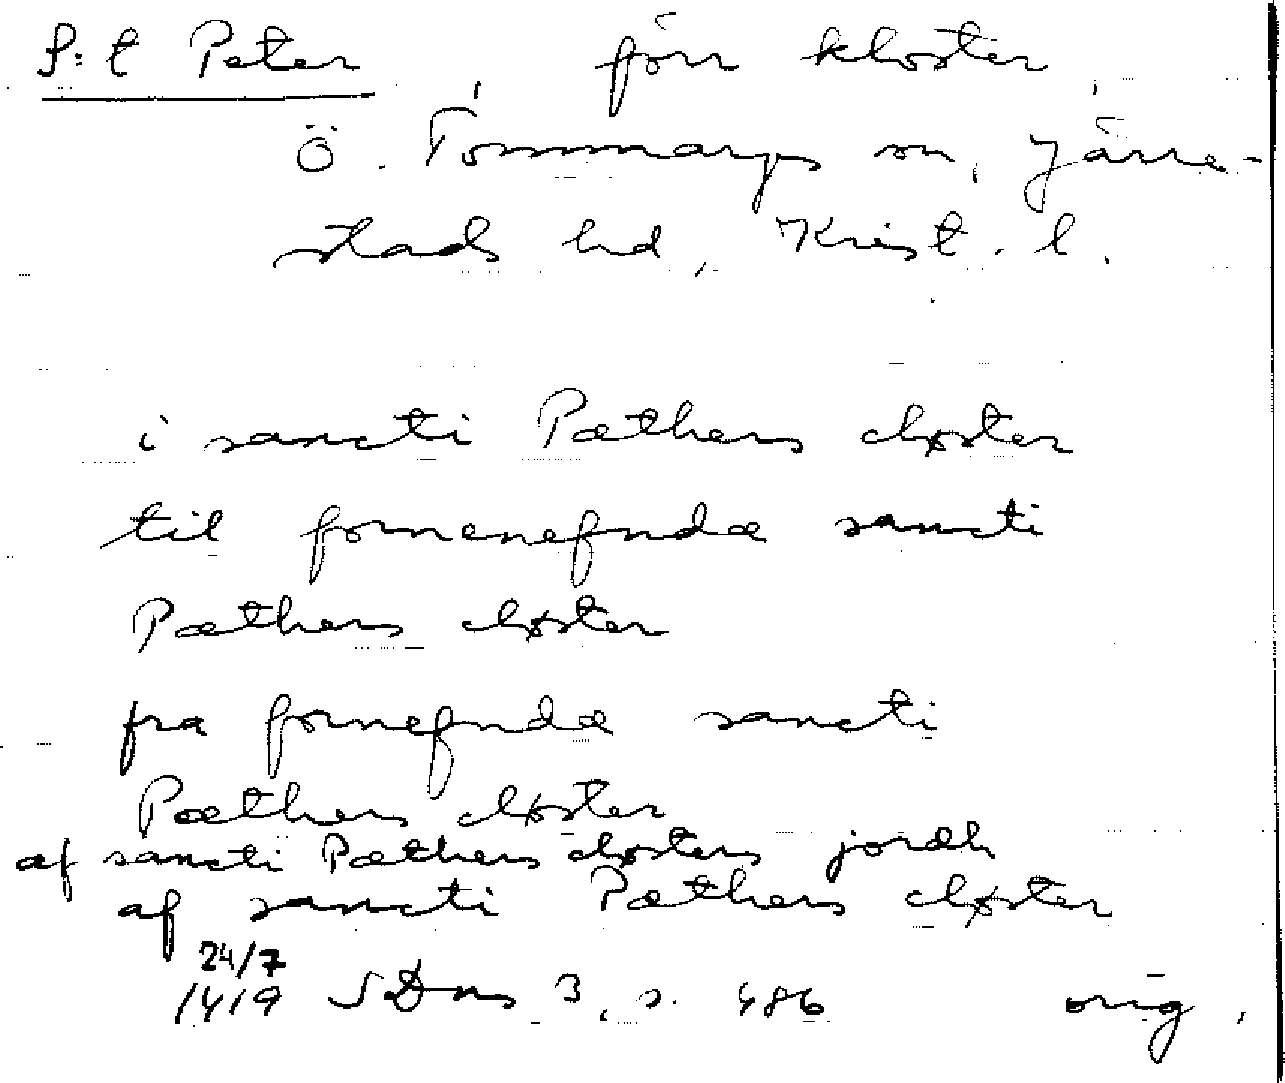 S:t Peter förr kloster
Ö. Tommarps sn, Järre-
stads hd, Krist. l.
i sancti Pæthers closter
til fornenefnde sancti
Pæthers closter
fra fornefnde sancti
Pæthers closter
af sancti Pæthers closters jordh
af sancti Pæthers closter
24/7
1419 SDns 3, s. 486 orig.